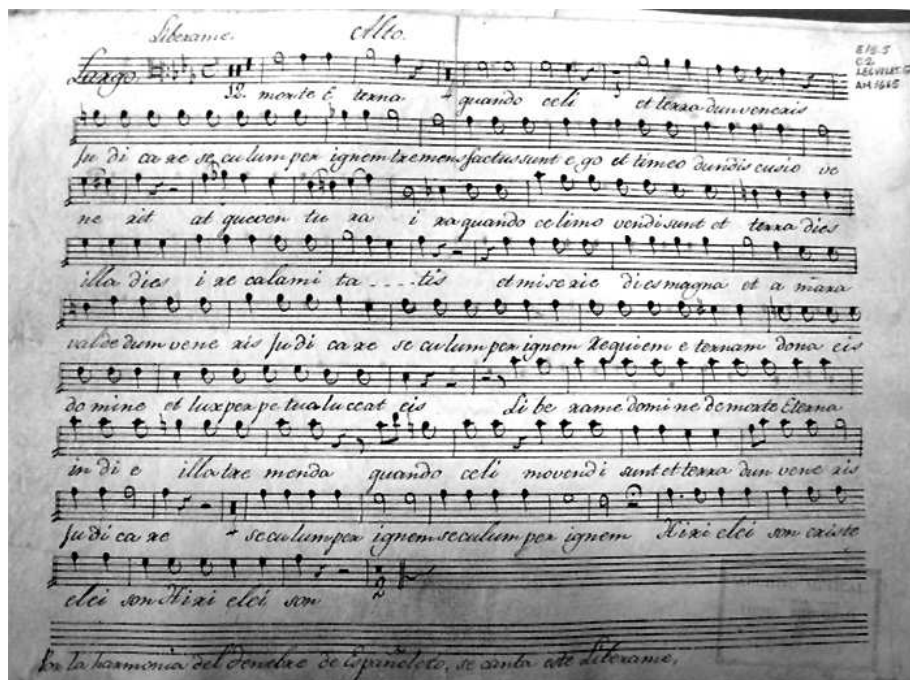 Liberame. Alto.
E/8.5
C2
LEG VILET. 5
AM 1665
Largo.
12. morte E terna quando celi et terra dun veneris
Ju di ca re se cu lum per ignem tremens factus sunt e go et timeo dun discusio ve
ne rit at que ven tu ra i ra quando ce li mo vendi sunt et terra dies
illa dies i re calami ta .... tis et mi se rie dies magna et a mara
valde dum vene ris Ju di ca re se cu lum per ignem Requiem e ternam dona eis
do mine et lux per pe tua lu ceat eis Li be rame domi ne de morte Eterna
in di e illa tre menda quando celi movendi sunt et terra dun vene ris
Ju di ca re se cu lum per ignem se cu lum per ignem Kiri elei son criste
elei son Kiri elei son
Por la harmonia del Jenebre de Españoleto, se canta este Liberame.